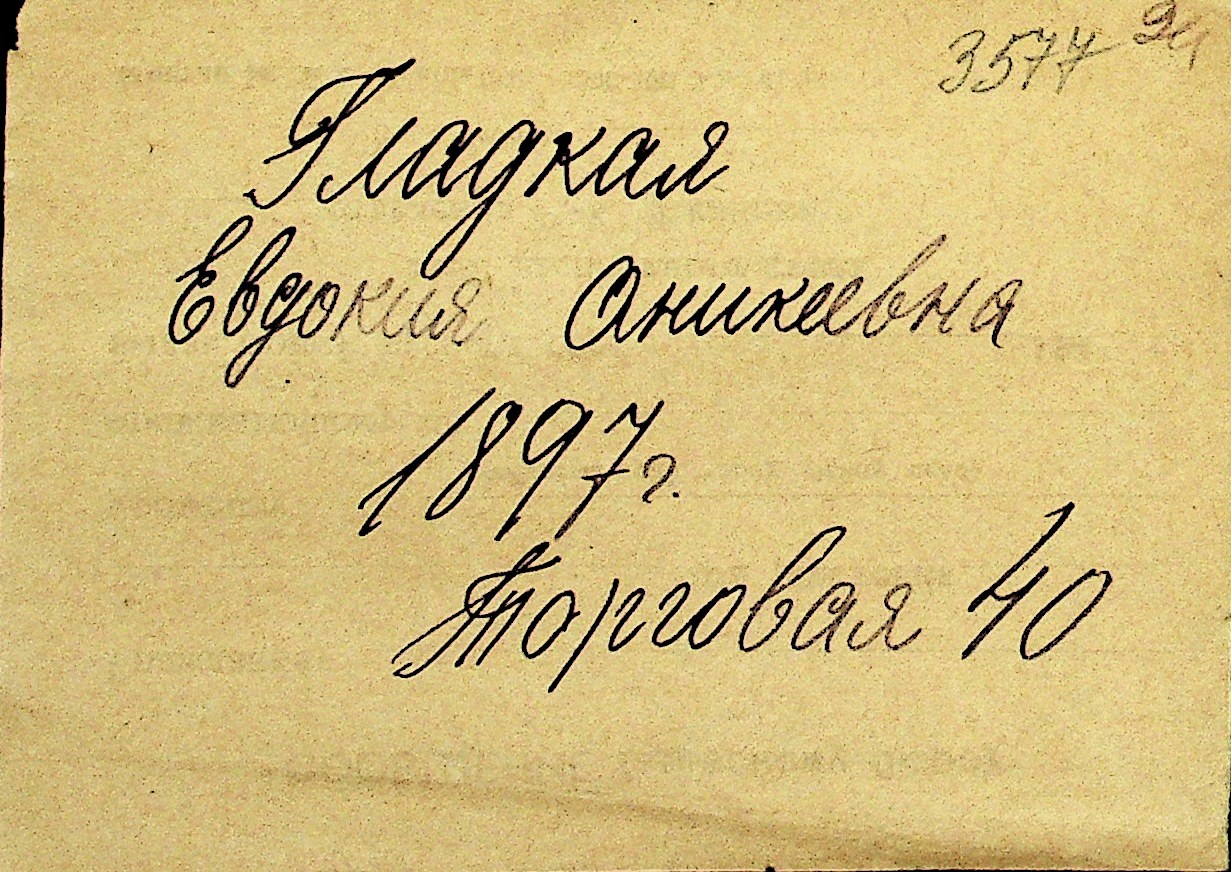 3577 9а
Гладкая
Евдокия Аникеевна
1897 г.
Торговая 40